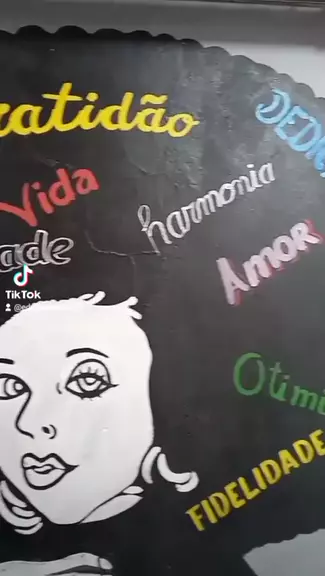 ratidão
DEDI
Vida
harmonia
ade
Amor
TikTok
Otimi
FIDELIDADE